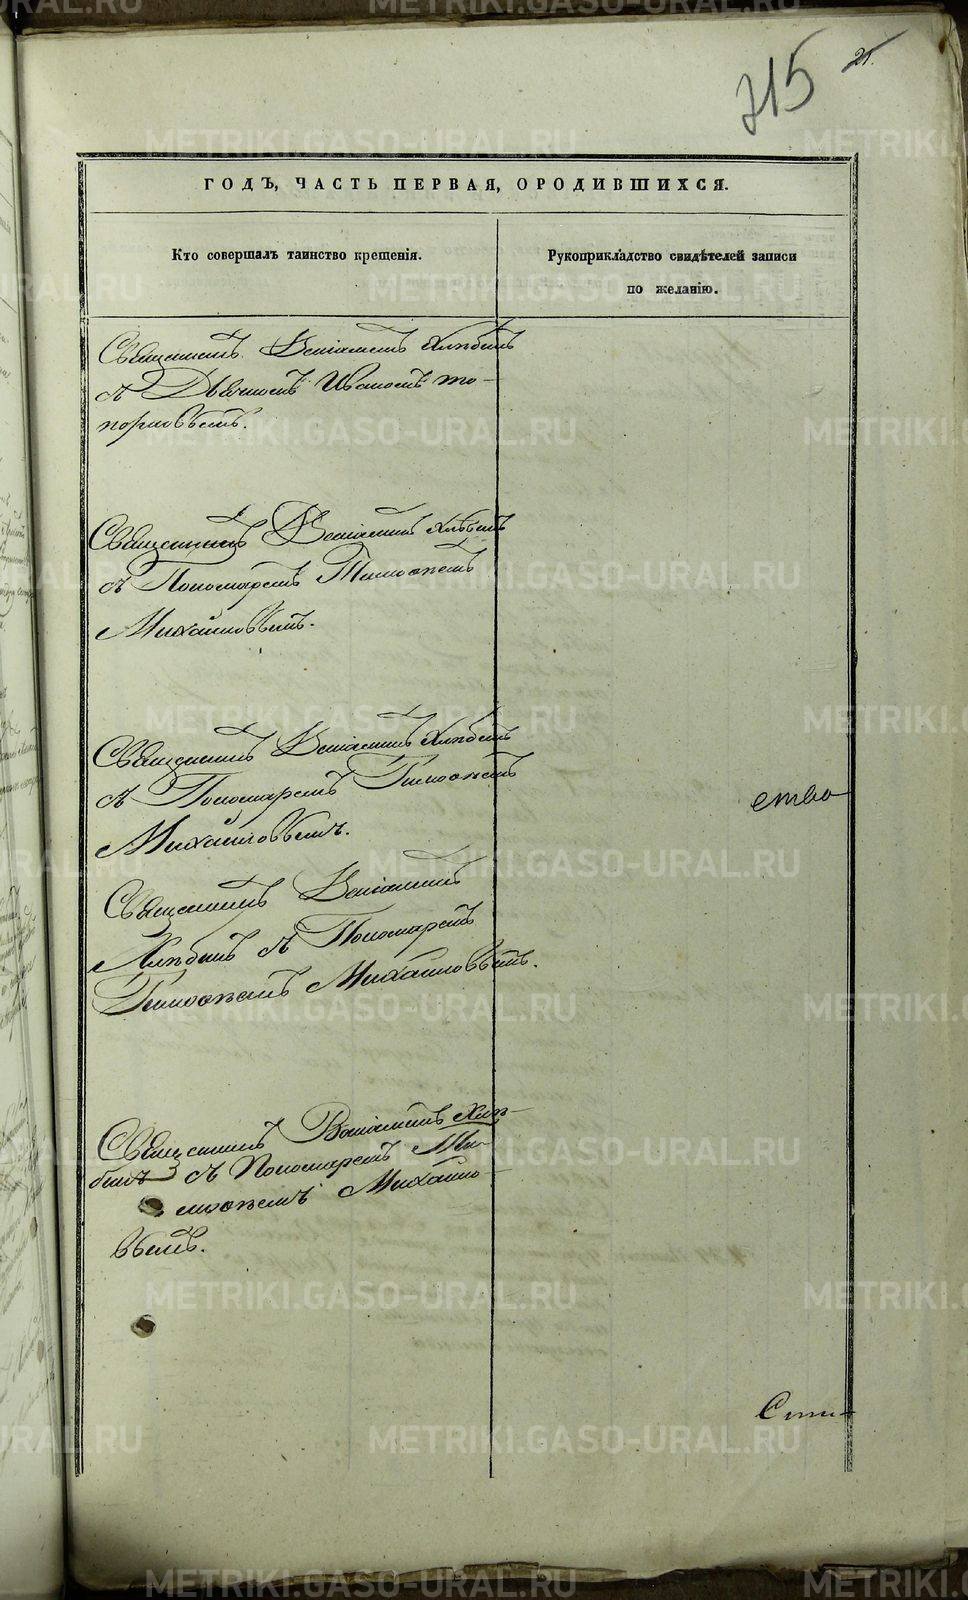 21.
715
ГОДЪ, ЧАСТЬ ПЕРВАЯ, О РОДИВШИХСЯ.
Кто совершалъ таинство крещенія.
Рукоприкладство свидѣтелей записи
по желанію.
Священникъ Веніаминъ Хлѣбинъ
съ Дьячкомъ Иваномъ То-
порковымъ.
Священникъ Веніаминъ Хлѣбинъ
съ Пономаремъ Тимоѳеемъ
Михайловымъ.
Священникъ Веніаминъ Хлѣбинъ
съ Пономаремъ Тимоѳеемъ
Михайловымъ.
ства
Священникъ Веніаминъ
Хлѣбинъ съ Пономаремъ
Тимоѳеемъ Михайловымъ.
Священникъ Веніаминъ Хлѣ-
бинъ съ Пономаремъ Ти-
моѳеемъ Михайло-
вымъ.
METRIKI.GASO-URAL.RU